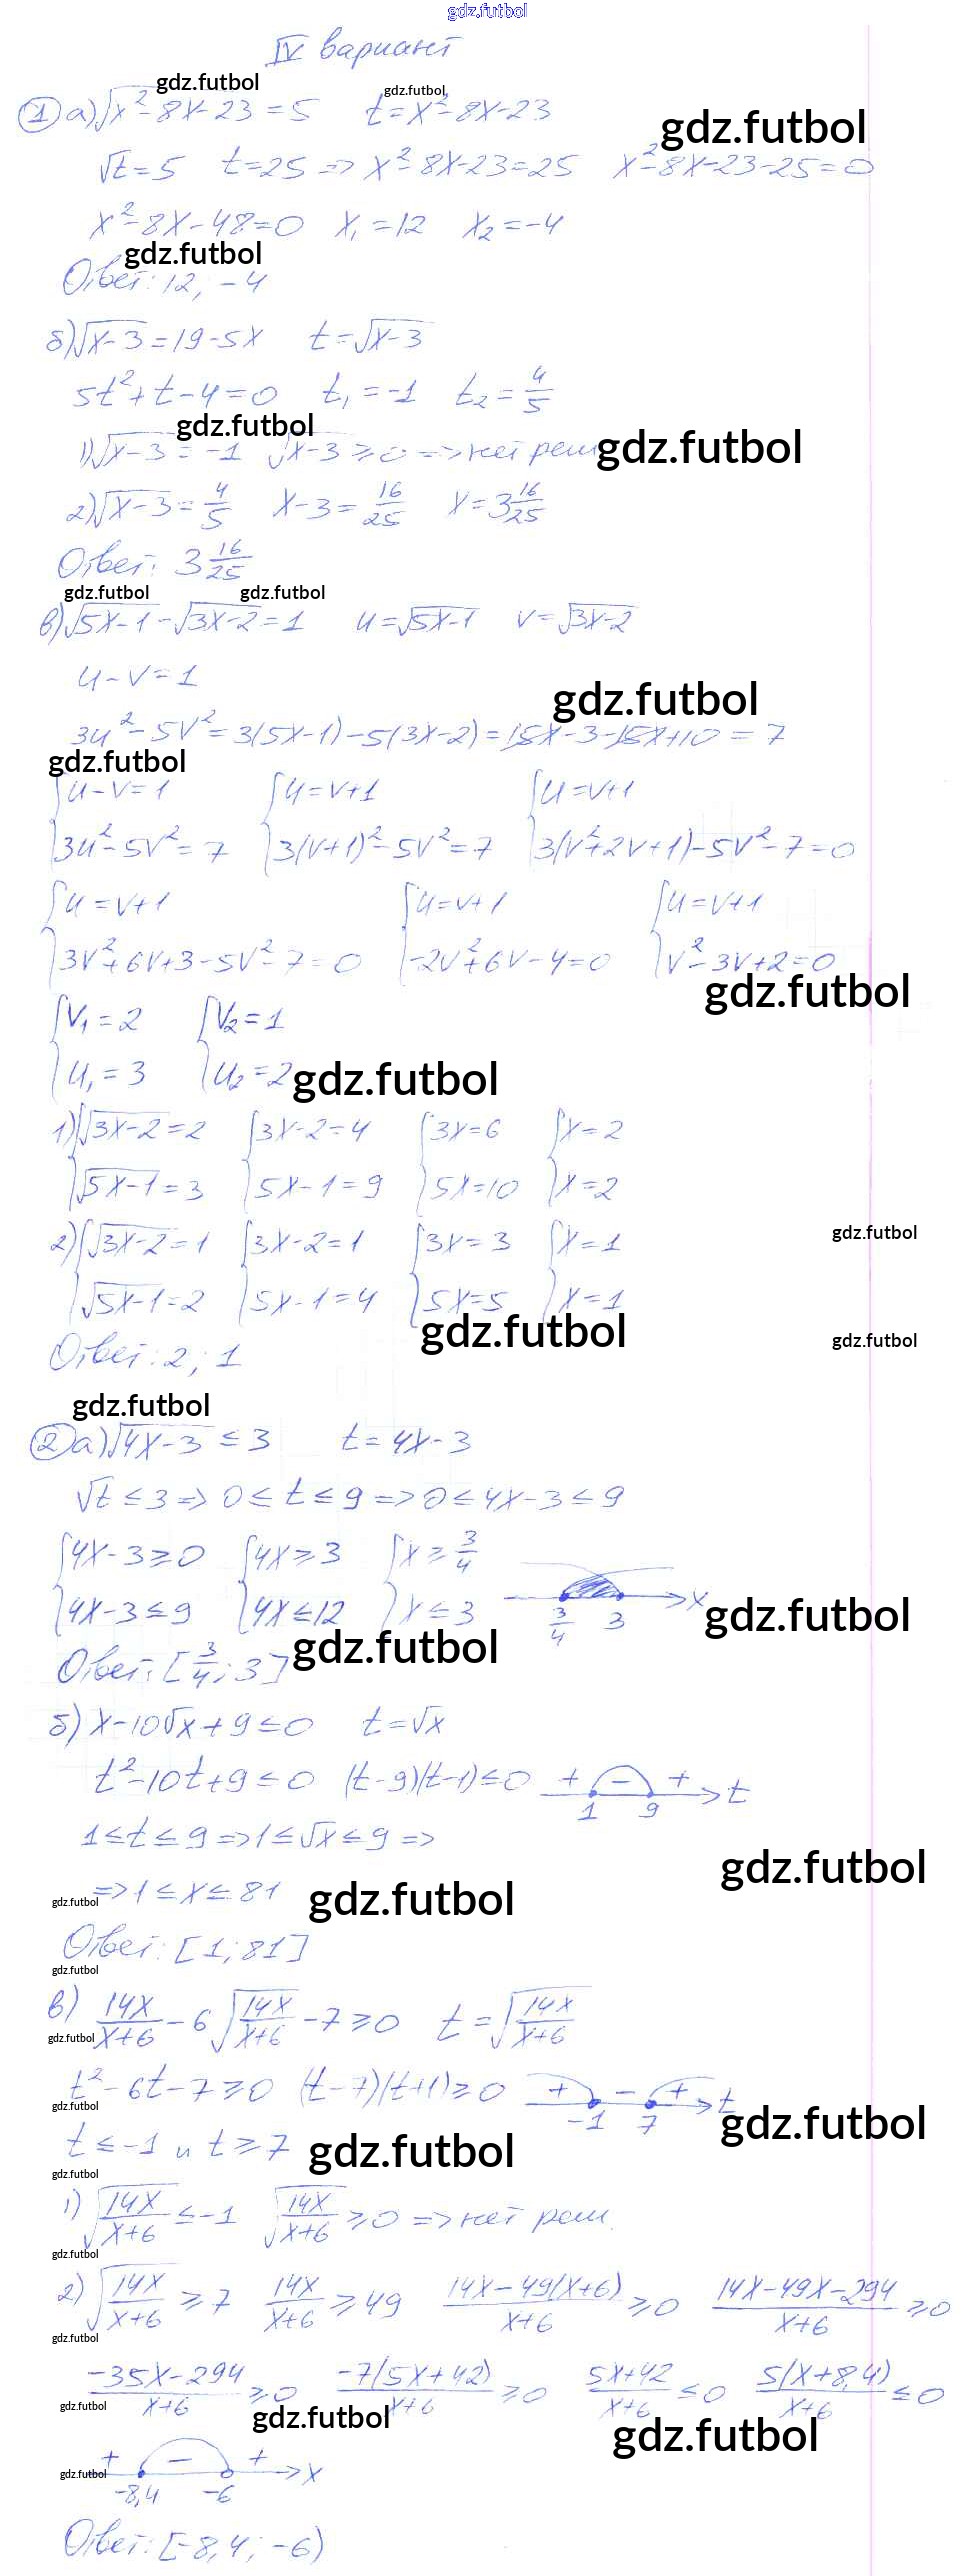 gdz.futbol
IV вариант
gdz.futbol gdz.futbol
① а) √(x²-8x-23) = 5 t = x²-8x-23
gdz.futbol
√t = 5 t = 25 => x²-8x-23=25 x²-8x-23-25=0
x²-8x-48=0 x₁=12 x₂=-4
gdz.futbol
Ответ: 12; -4
б) √(x-3) = 19-5x t = √(x-3)
5t²+t-4=0 t₁=-1 t₂=4/5
gdz.futbol
1) √(x-3) = -1 √(x-3) ≥ 0 => нет реш gdz.futbol
2) √(x-3) = 4/5 x-3 = 16/25 x = 3 16/25
Ответ: 3 16/25
gdz.futbol gdz.futbol
в) √(5x-1) - √(3x-2) = 1 u = √(5x-1) v = √(3x-2)
u-v=1
gdz.futbol
3u²-5v² = 3(5x-1)-5(3x-2) = 15x-3-15x+10 = 7
gdz.futbol
{u-v=1 {u=v+1 {u=v+1
{3u²-5v²=7 {3(v+1)²-5v²=7 {3(v²+2v+1)-5v²-7=0
{u=v+1 {u=v+1 {u=v+1
{3v²+6v+3-5v²-7=0 {-2v²+6v-4=0 {v²-3v+2=0
gdz.futbol
{v₁=2 {v₂=1
{u₁=3 {u₂=2 gdz.futbol
1) {√(3x-2)=2 {3x-2=4 {3x=6 {x=2
{√(5x-1)=3 {5x-1=9 {5x=10 {x=2
gdz.futbol
2) {√(3x-2)=1 {3x-2=1 {3x=3 {x=1
{√(5x-1)=2 {5x-1=4 {5x=5 {x=1
gdz.futbol gdz.futbol
Ответ: 2; 1
gdz.futbol
② а) √(4x-3) ≤ 3 t = 4x-3
√t ≤ 3 => 0 ≤ t ≤ 9 => 0 ≤ 4x-3 ≤ 9
{4x-3≥0 {4x≥3 {x≥3/4
{4x-3≤9 {4x≤12 {x≤3 3/4 3 x gdz.futbol
gdz.futbol
Ответ: [3/4; 3]
б) x-10√x+9≤0 t=√x
t²-10t+9≤0 (t-9)(t-1)≤0 + - + 1 9 t
1≤t≤9 => 1≤√x≤9 =>
gdz.futbol
=> 1≤x≤81 gdz.futbol
gdz.futbol
Ответ: [1; 81]
gdz.futbol
в) 14x/(x+6) - 6√(14x/(x+6)) - 7 ≥ 0 t = √(14x/(x+6))
gdz.futbol
t²-6t-7≥0 (t-7)(t+1)≥0 + - + -1 7 t
gdz.futbol gdz.futbol
t≤-1 и t≥7 gdz.futbol
gdz.futbol
1) √(14x/(x+6)) ≤ -1 √(14x/(x+6)) ≥ 0 => нет реш.
gdz.futbol
2) √(14x/(x+6)) ≥ 7 14x/(x+6) ≥ 49 (14x-49(x+6))/(x+6) ≥ 0 (14x-49x-294)/(x+6) ≥ 0
gdz.futbol
(-35x-294)/(x+6) ≥ 0 -7(5x+42)/(x+6) ≥ 0 (5x+42)/(x+6) ≤ 0 5(x+8,4)/(x+6) ≤ 0
gdz.futbol gdz.futbol gdz.futbol
+ - + -8,4 -6 x
gdz.futbol
Ответ: [-8,4; -6)